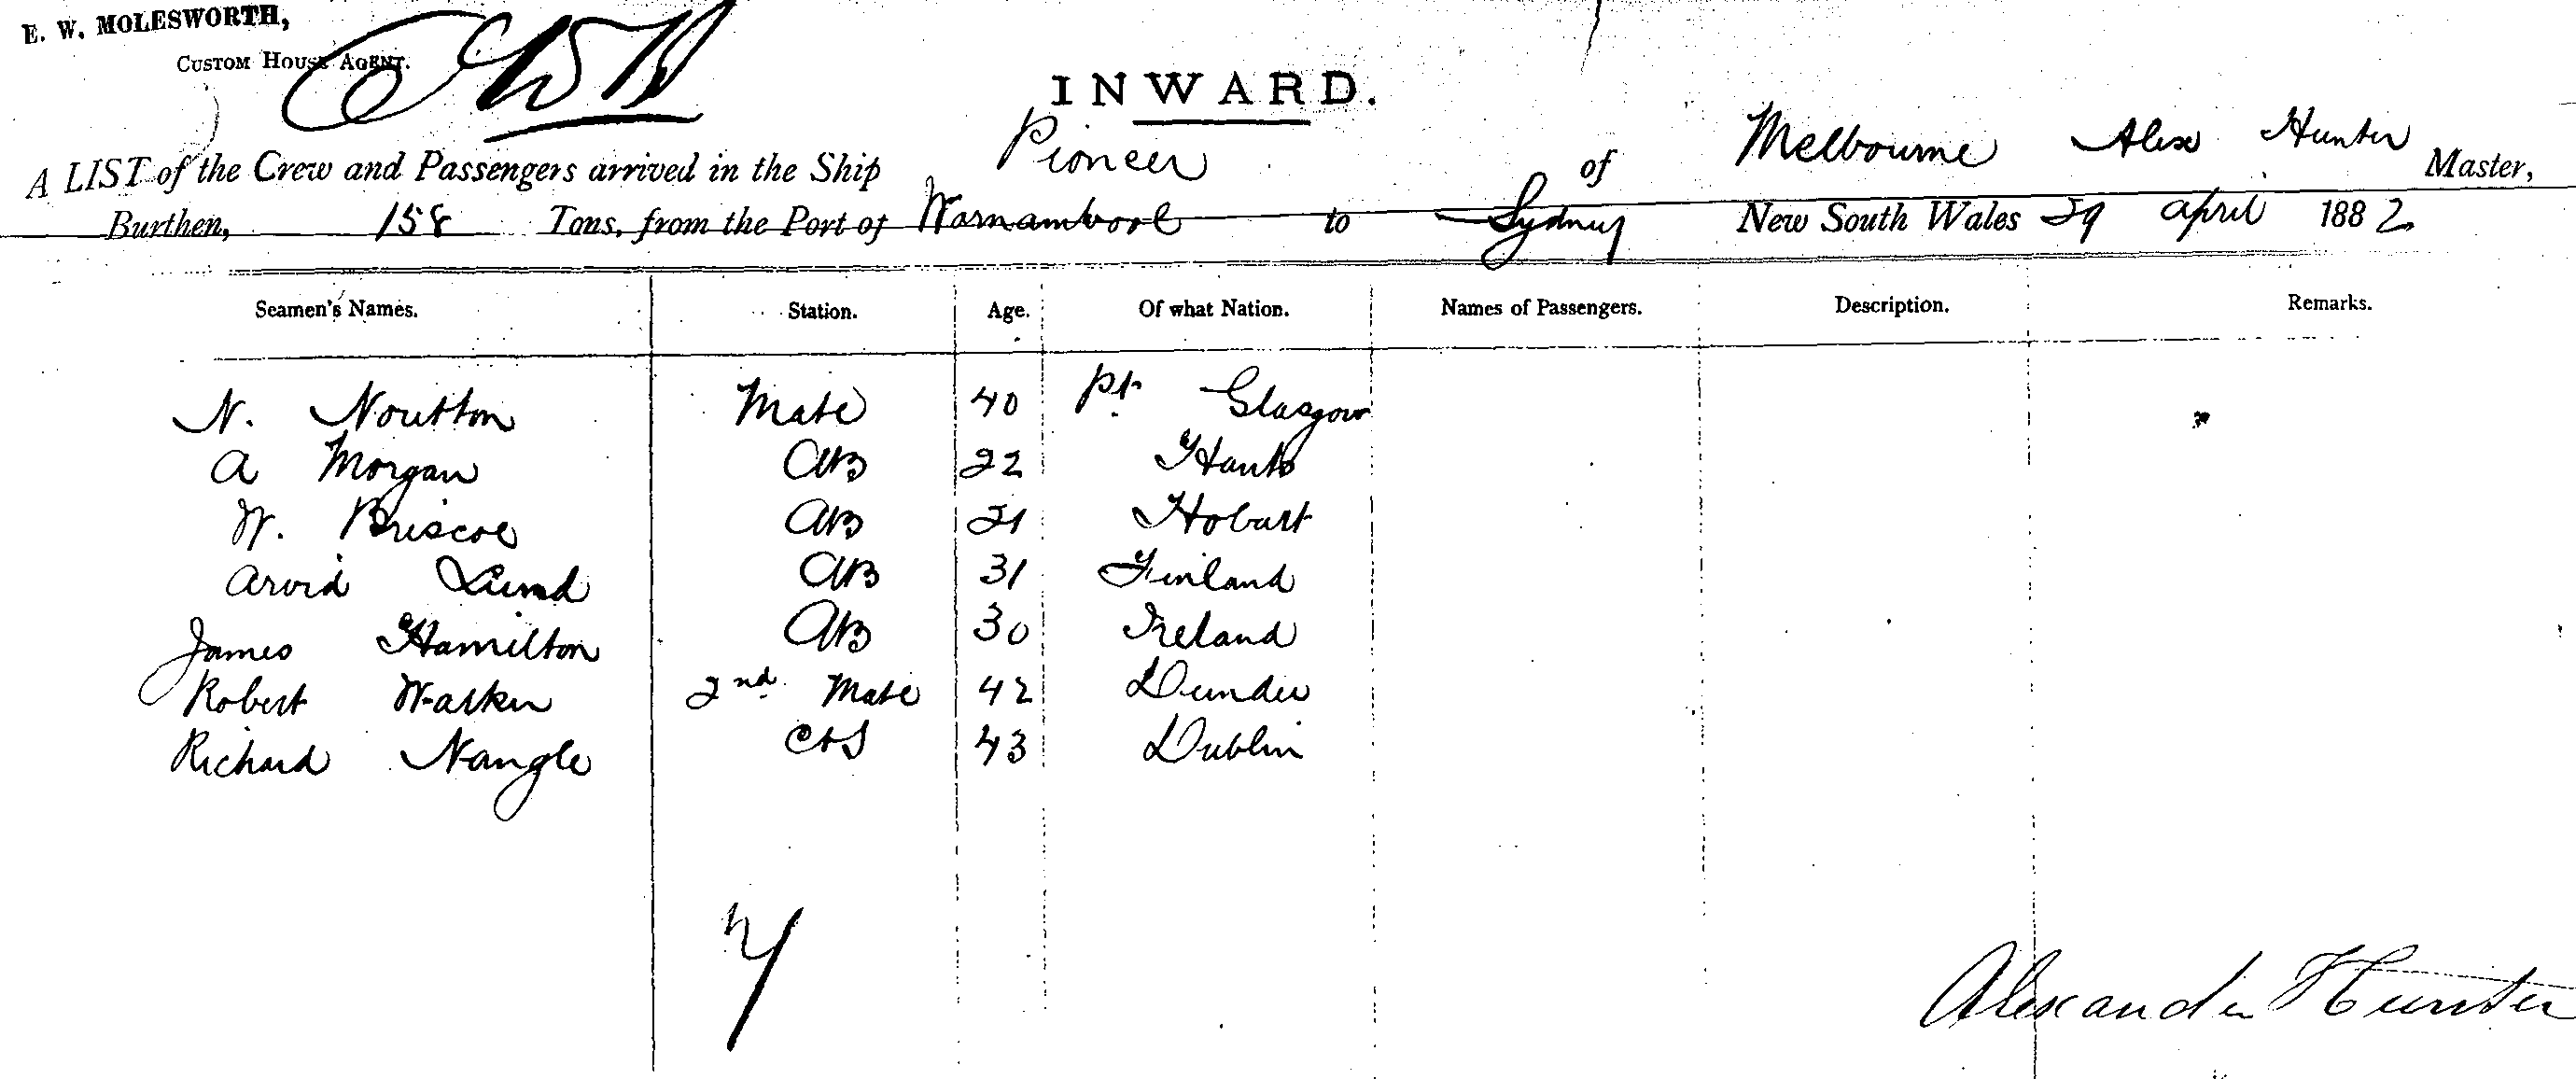 E. W. MOLESWORTH,
CUSTOM HOUSE AGENT.
INWARD.
A LIST of the Crew and Passengers arrived in the Ship Pioneer of Melbourne Alex Hunter Master,
Burthen, 158 Tons, from the Port of Warnambool to Sydney New South Wales 29 April 1882
Seamen's Names. Station. Age. Of what Nation. Names of Passengers. Description. Remarks.
N. Mate 40 Pt Glasgow
A Morgan AB 22 Hants
W. Briscoe AB 21 Hobart
Arvid Lund AB 31 Finland
James Hamilton AB 30 Ireland
Robert Walker 2nd Mate 42 Dundee
Richard Nangle C&S 43 Dublin
7
Alexander Hunter